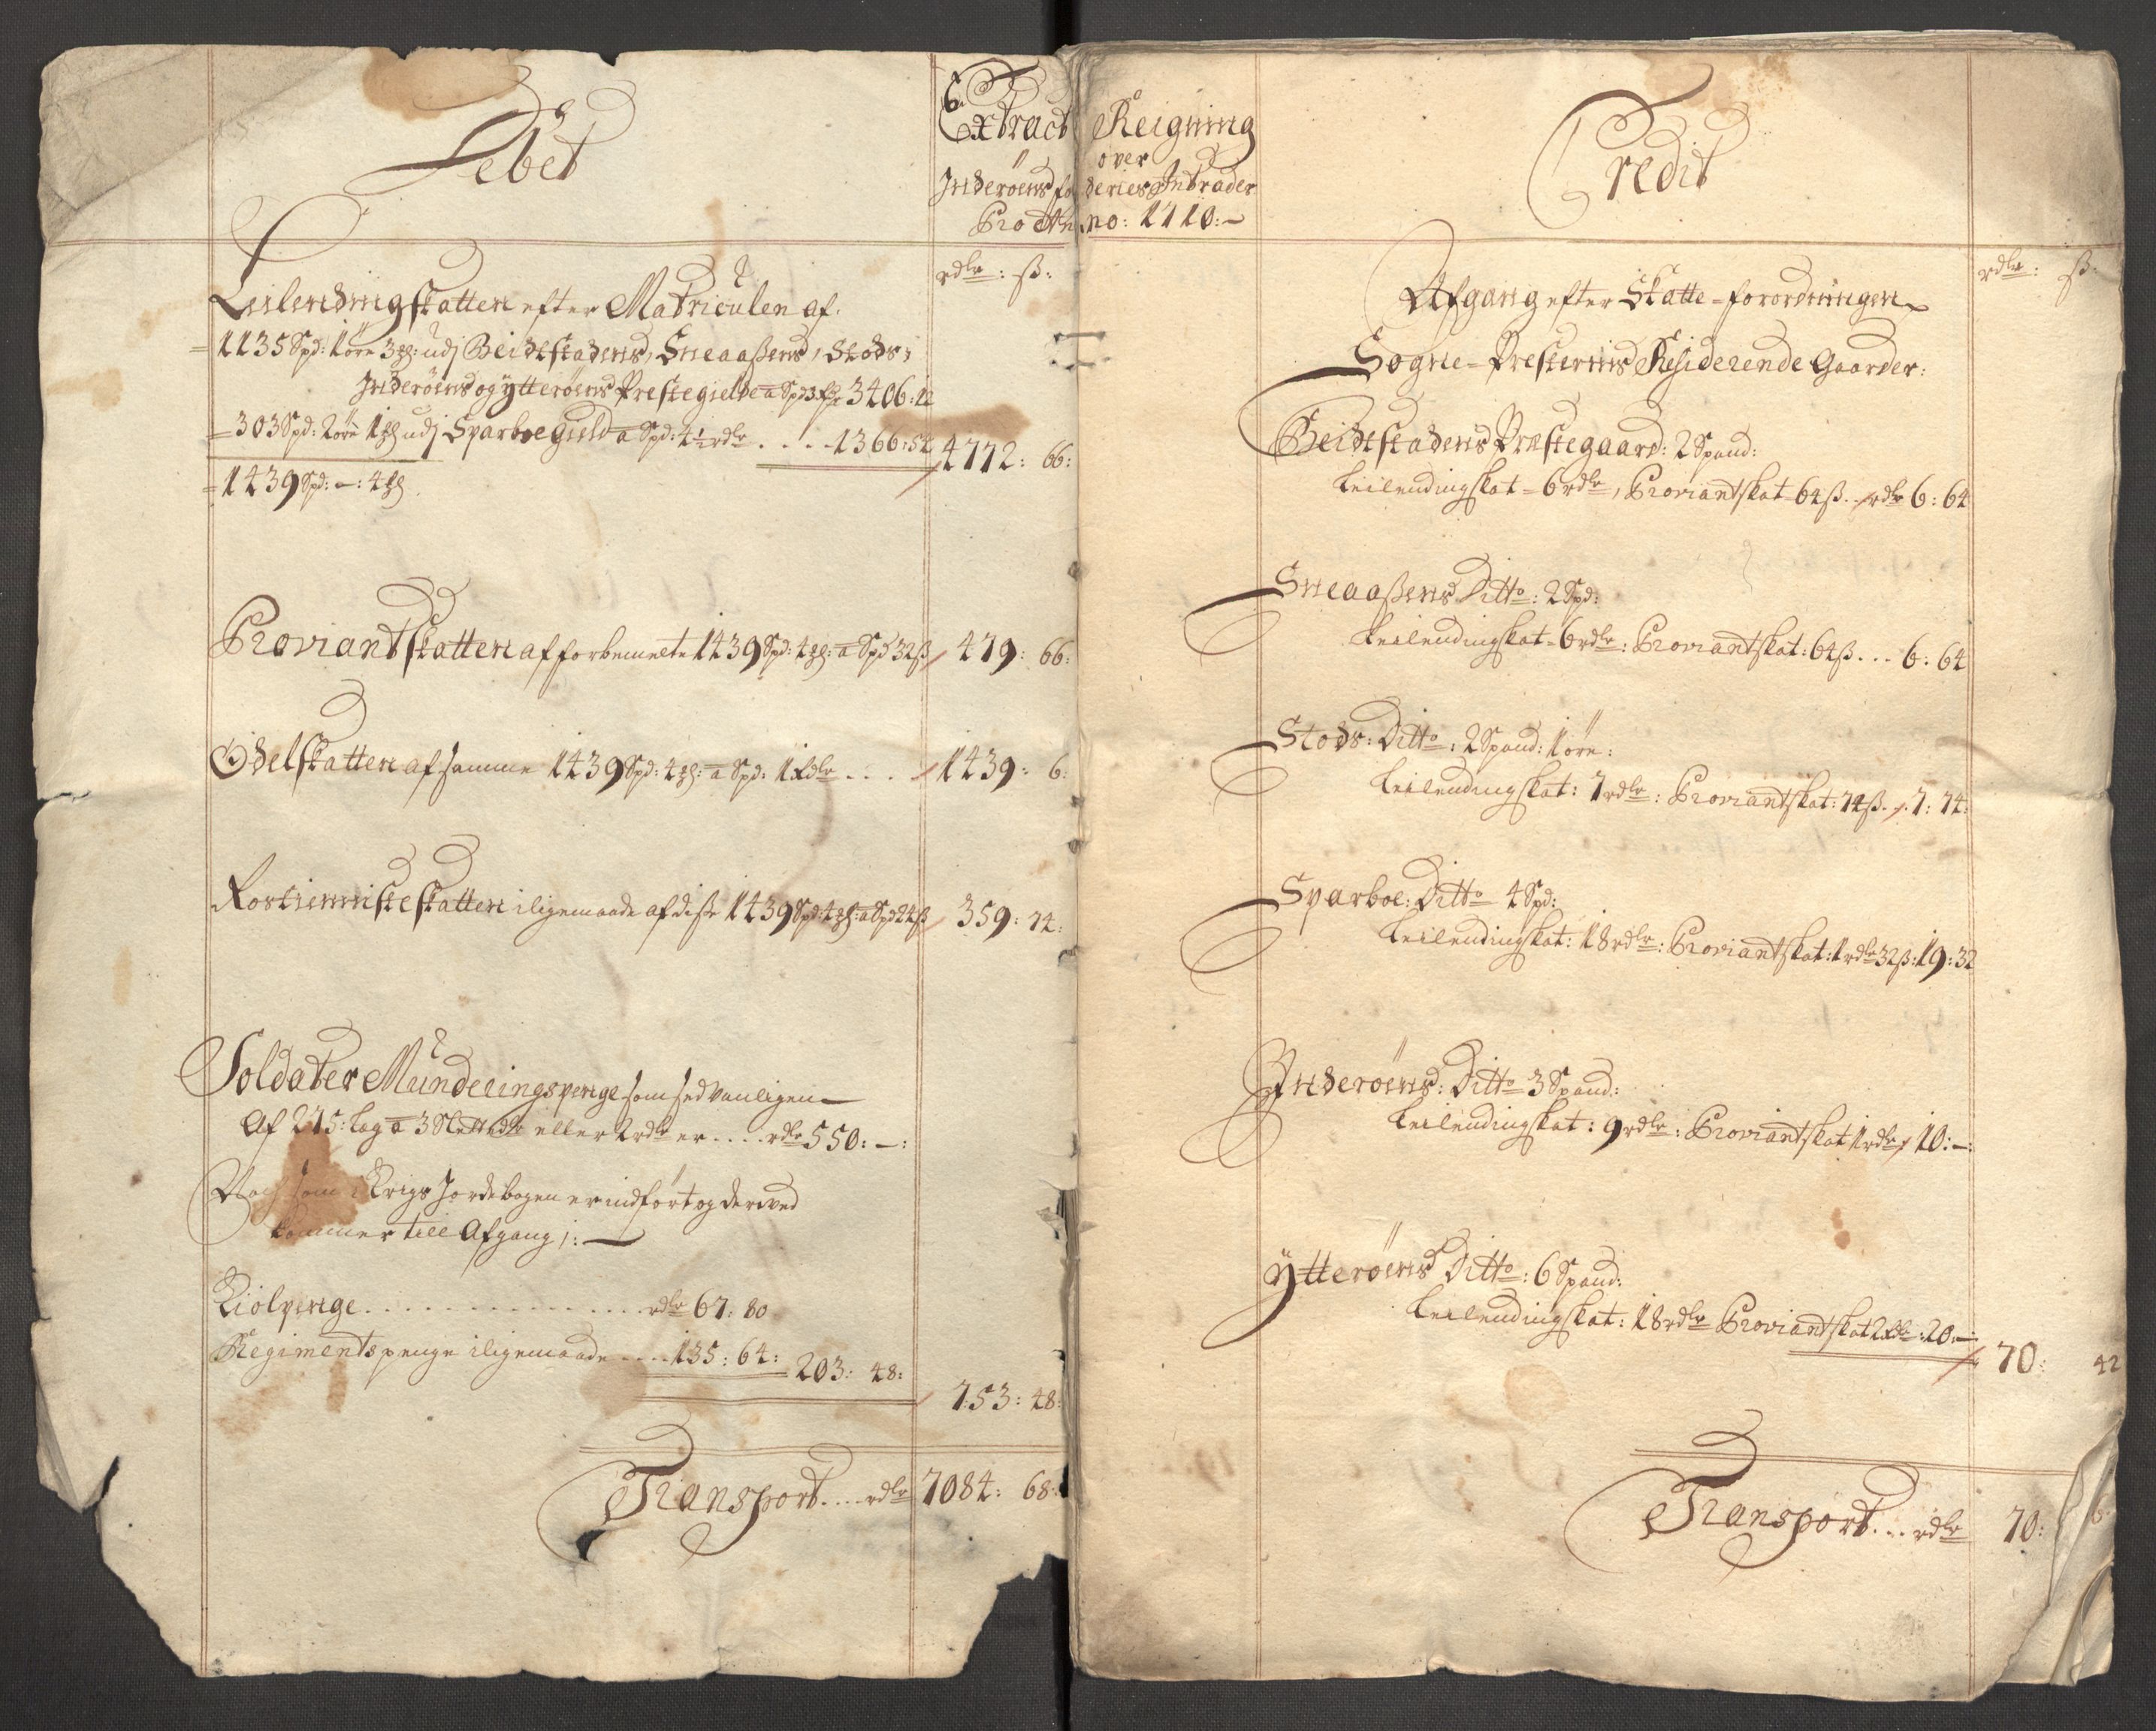 Debet
Extract Reigning
over
Inderøens fogderies Intrader
Pro Anno: 1710:
rdlr: ß:
Leilendingskatten efter Matriculen af
1135 Spd: 1 öre 3 : udj Beidstadens, Sneaaßens, Stods,
Inderöens og ÿtteröens Prestegield a Spd 3 rdr 3406: 12
303 Spd: 2 öre 1 udj Sparboe Gield a Spd: 4½ rdlr .... 1366: 54 4772: 66:
1439 Spd: -: 4
Proviantskatten af forbemelte 1439 Spd: 4 : a Spd 32 ß 479: 66:
Odelskatten af samme 1439 Spd: 4 : a Spd: 1 rdlr .... 1439: 6:
Rostienniste skatten iligemaade af diße 1439 Spd: 4 : a Spd 24 ß 359: 74:
Soldater Munderingspenge som sedvanligen
Af 275: Lag a 3 Slettedlr eller 2 rdlr er .... rdlr 550: -:
som i Krigs Jordebogen er indført og derved
kommer till Afgang;:
Kiolpenge .......... rdlr 67: 80
Regimentspenge iligemaade .... 135: 64: 203: 48:
753: 48:
Transport .... rdlr 7084: 68:
Credit
rdlr: ß:
Afgang efter Skatte-forordningen
Sogne-Presternis Residerende Gaarder:
Beidstadens Præstegaard: 2 Spand:
Leilendingskat = 6 rdlr, Proviantskat = 64 ß .. rdlr 6: 64
Sneaaßens Ditto: 2 Spd:
Leilendingskat = 6 rdlr: Proviantskat: 64 ß ... 6: 64
Stods: Ditto: 2 Spand: 1 öre:
Leilendingskat: 7 rdlr: Proviantskat: 74 ß .. 7: 74:
Sparboe: Ditto 4 Spd:
Leilendingskat: 18 rdlr: Proviantskat: 1 rdlr 32 ß: 19: 32
Inderöens: Ditto 3 Spand:
Leilendingskat: 9 rdlr: Proviantskat 1 rdlr 10: -:
ÿtteröens Ditto: 6 Spand:
Leilendingskat: 18 rdlr Proviantskat 2 rdlr: 20: -
70: 42
Transport ... rdlr 70: